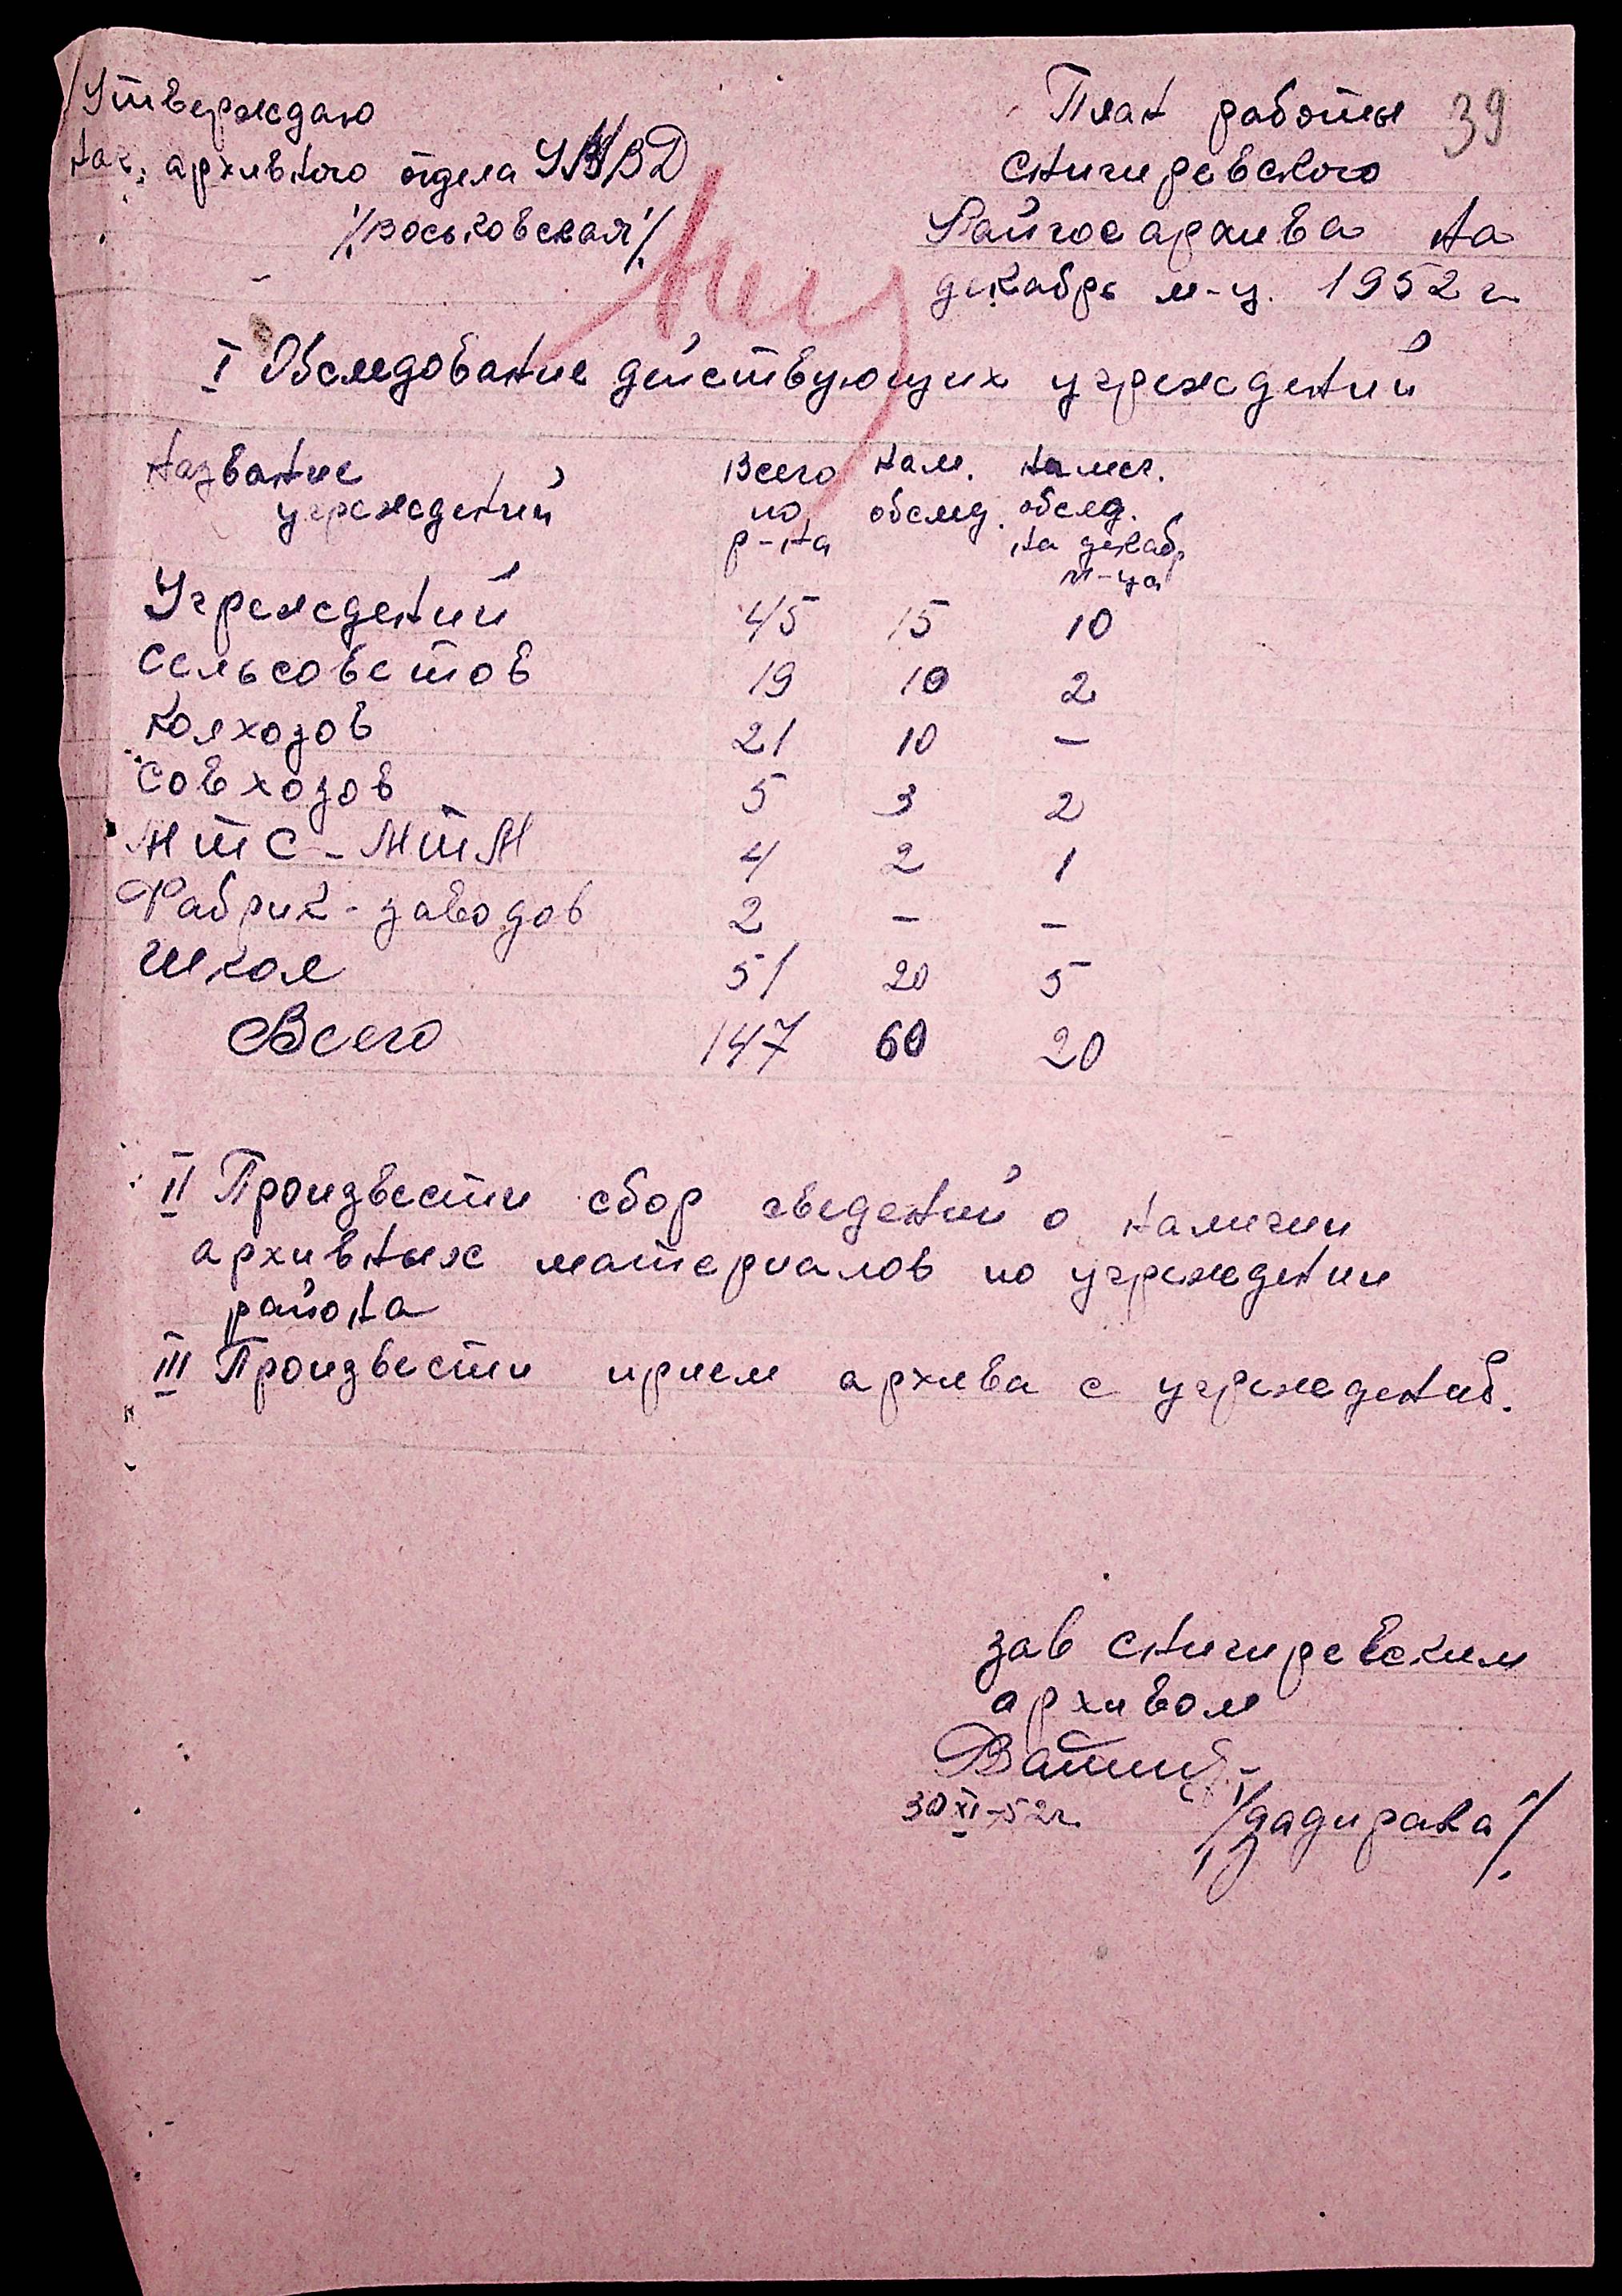 Утверждаю
Нач. архивного отдела УМВД
/Воськовская/
План работы
Снигиревского
Райгосархива на
декабрь м-ц. 1952 г
39
I Обследование действующих учреждений
Название учреждений Всего по р-на нам. обслед. намеч. обслед. на декабр м-ца
Учреждений 45 15 10
Сельсоветов 19 10 2
Колхозов 21 10 –
Совхозов 5 3 2
МТС - МТМ 4 2 1
Фабрик - заводов 2 – –
Школ 51 20 5
Всего 147 60 20
II Произвести сбор сведений о наличии
архивных материалов по учреждении
района
III Произвести прием архива с учреждений.
Зав Снигиревским
архивом
30 XI-52г.